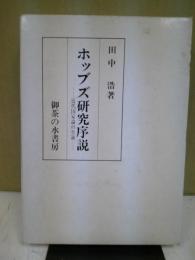 田中 浩著
ホッブズ研究序説
御茶の水書房